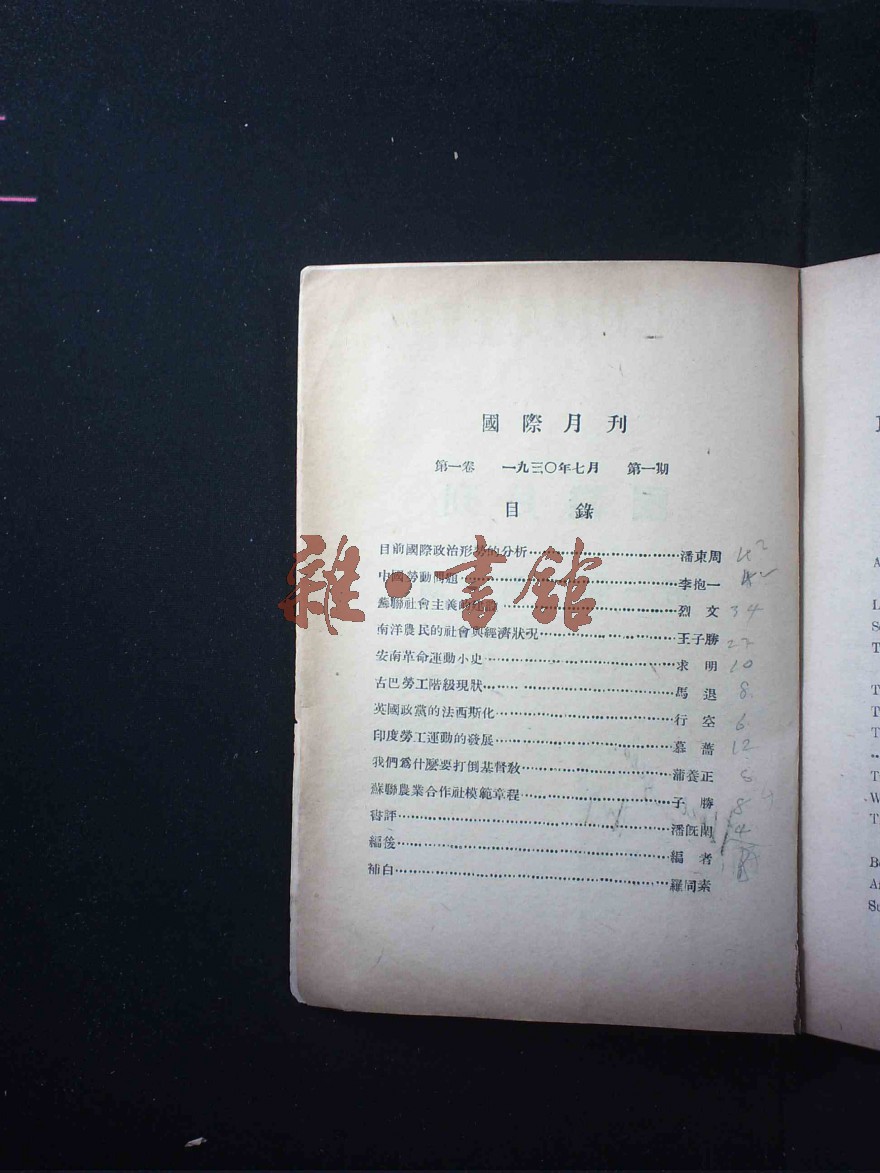 國際月刊
第一卷 一九三〇年七月 第一期
目錄
目前國際政治形勢的分析……潘東周
中國勞動問題……李抱一
蘇聯社會主義的……烈文 34
南洋農民的社會與經濟狀况……王子勝 27
安南革命運動小史……求明 10
古巴勞工階級現狀……馬退 8
英國政黨的法西斯化……行空 6
印度勞工運動的發展……慕薔 12
我們爲什麼要打倒基督敎……蒲養正 8
蘇聯農業合作社模範章程……子勝 8
書評……潘旣閑 4
編後……編者
補白……羅同素
雜·書館